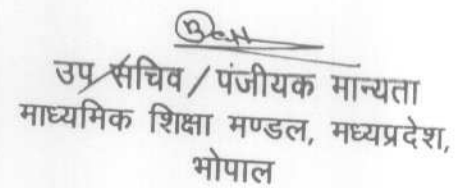 उप सचिव / पंजीयक मान्यता
माध्यमिक शिक्षा मण्डल, मध्यप्रदेश,
भोपाल